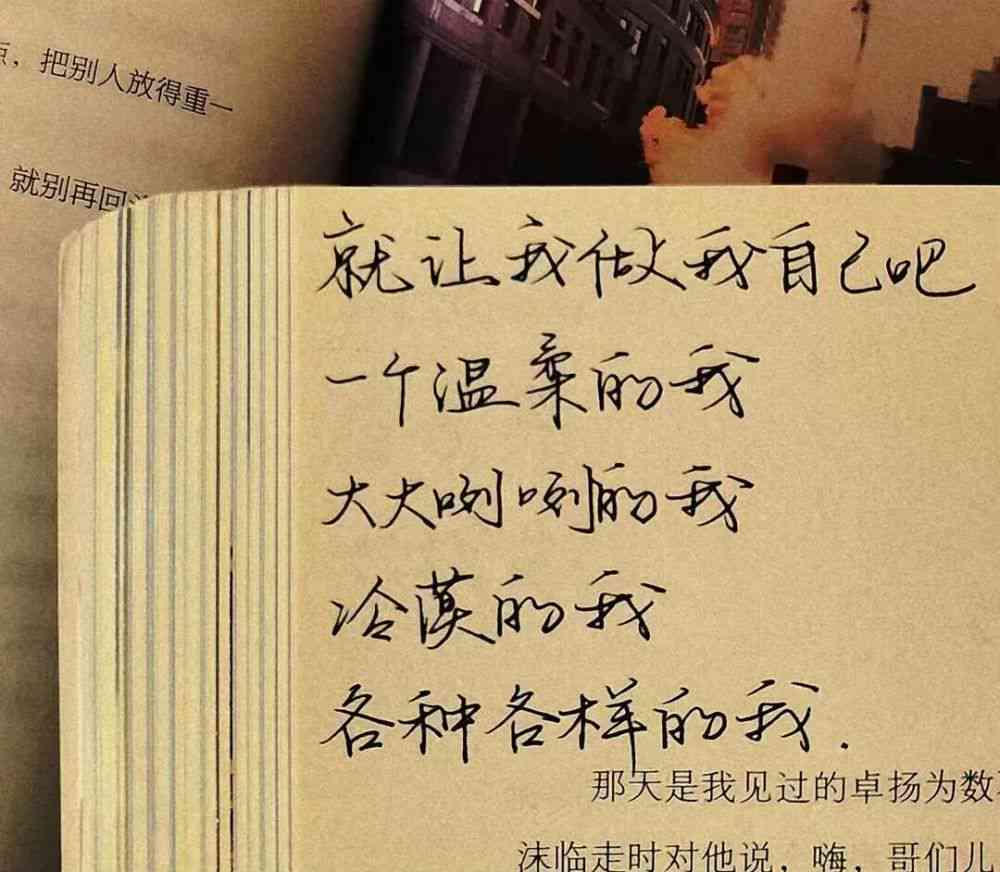 点，把别人放得重一
就别再回
就让我做我自己吧
一个温柔的我
大大咧咧的我
冷漠的我
各种各样的我.
那天是我见过的卓扬为数
沫临走时对他说，嗨，哥们儿